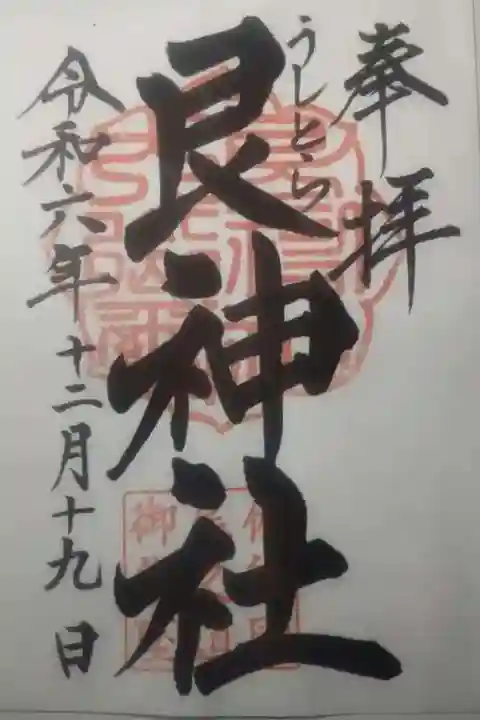 奉拝
うしとら
艮神社
令和六年十二月十九日